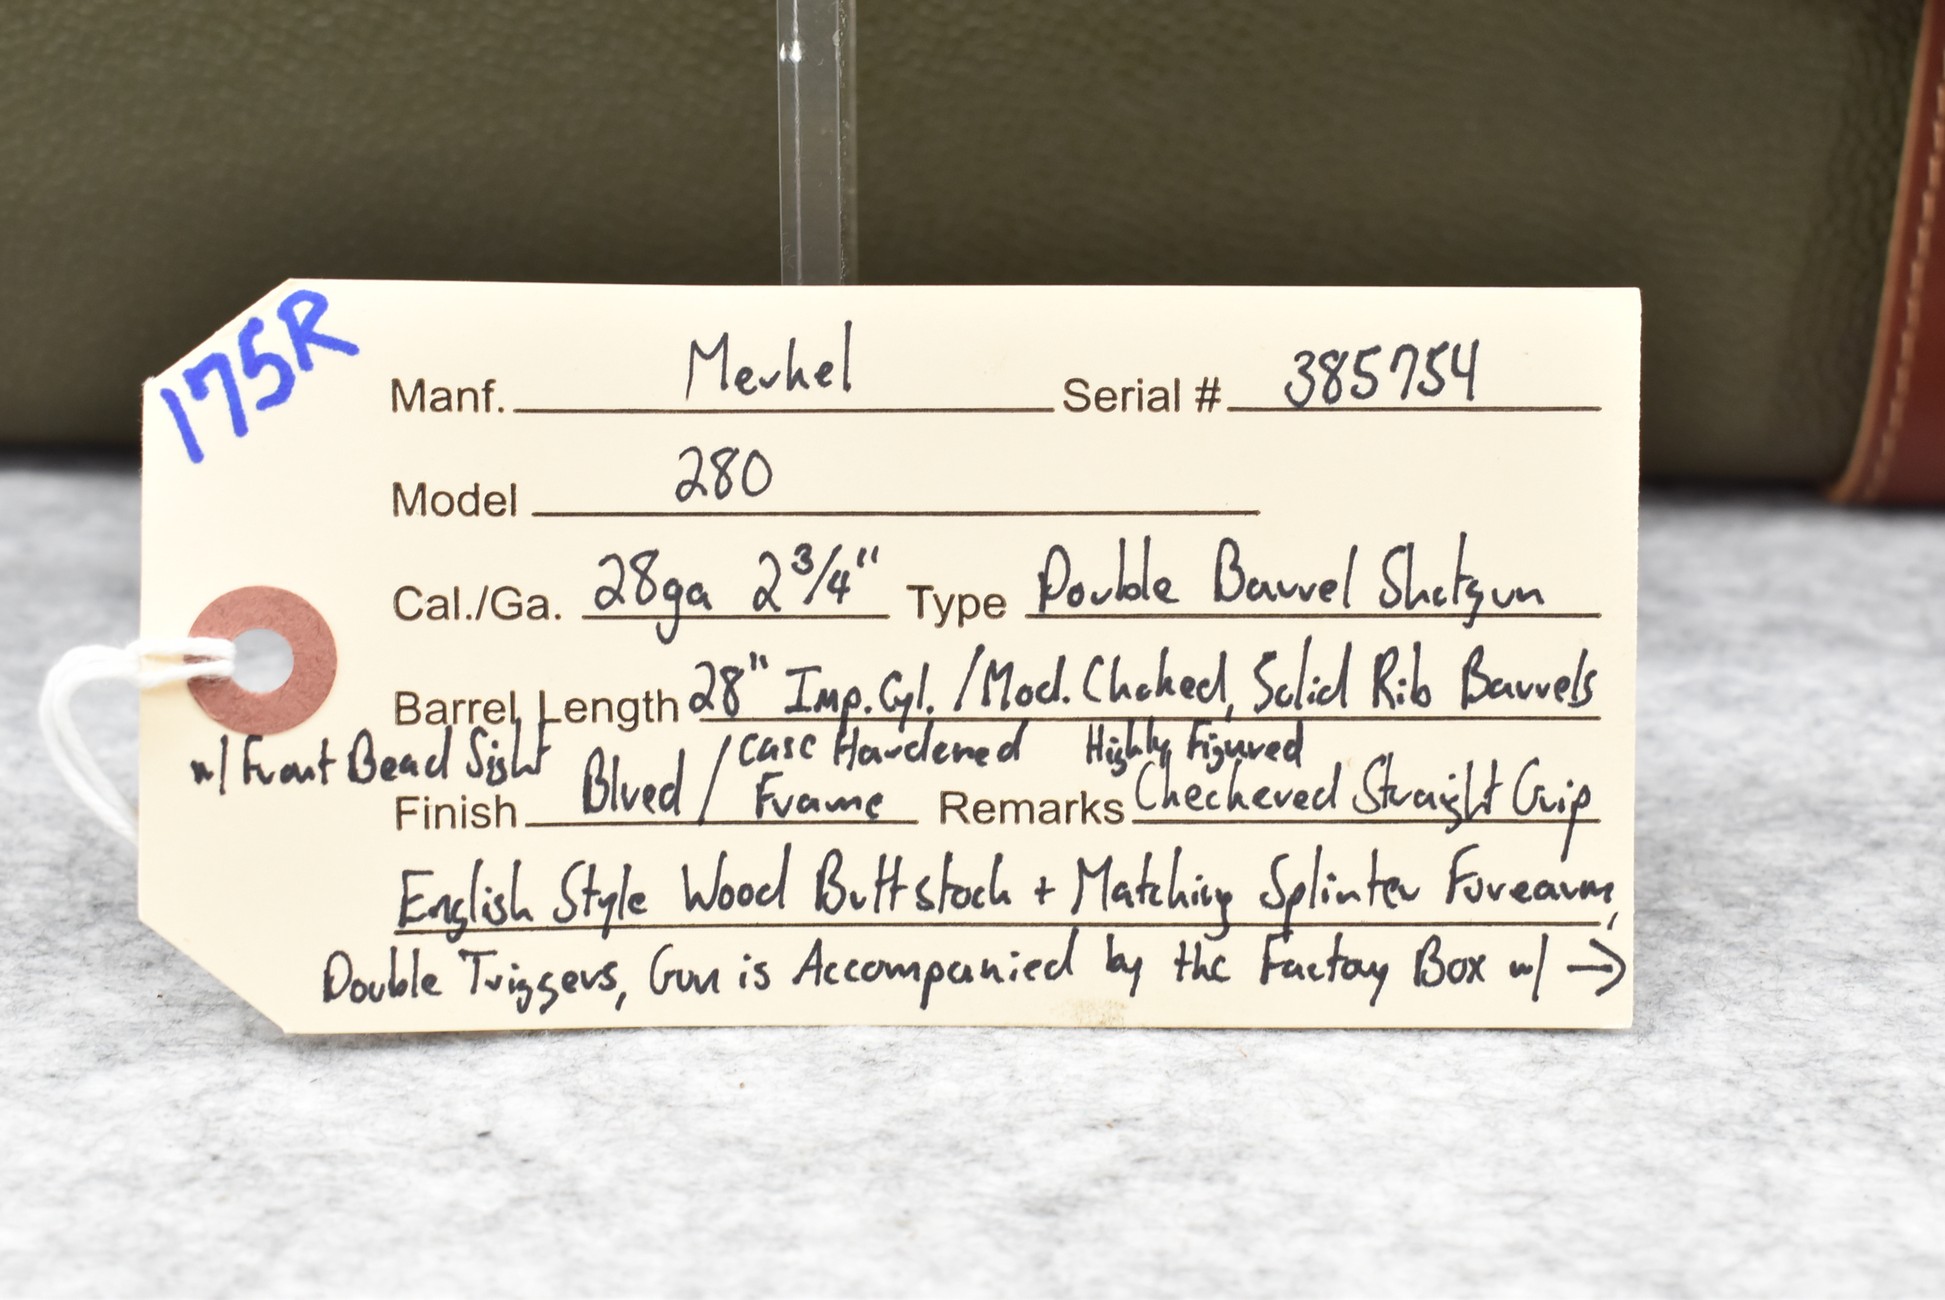 175R
Manf. Merkel Serial # 385754
Model 280
Cal./Ga. 28ga 2 3/4" Type Double Barrel Shotgun
Barrel Length 28" Imp. Cyl. / Mod. Choked, Solid Rib Barrels
w/ Front Bead Sight
Finish Blued / Case Hardened Frame Remarks Highly Figured Checkered Straight Grip
English Style Wood Buttstock + Matching Splinter Forearm,
Double Triggers, Gun is Accompanied by the Factory Box w/ →